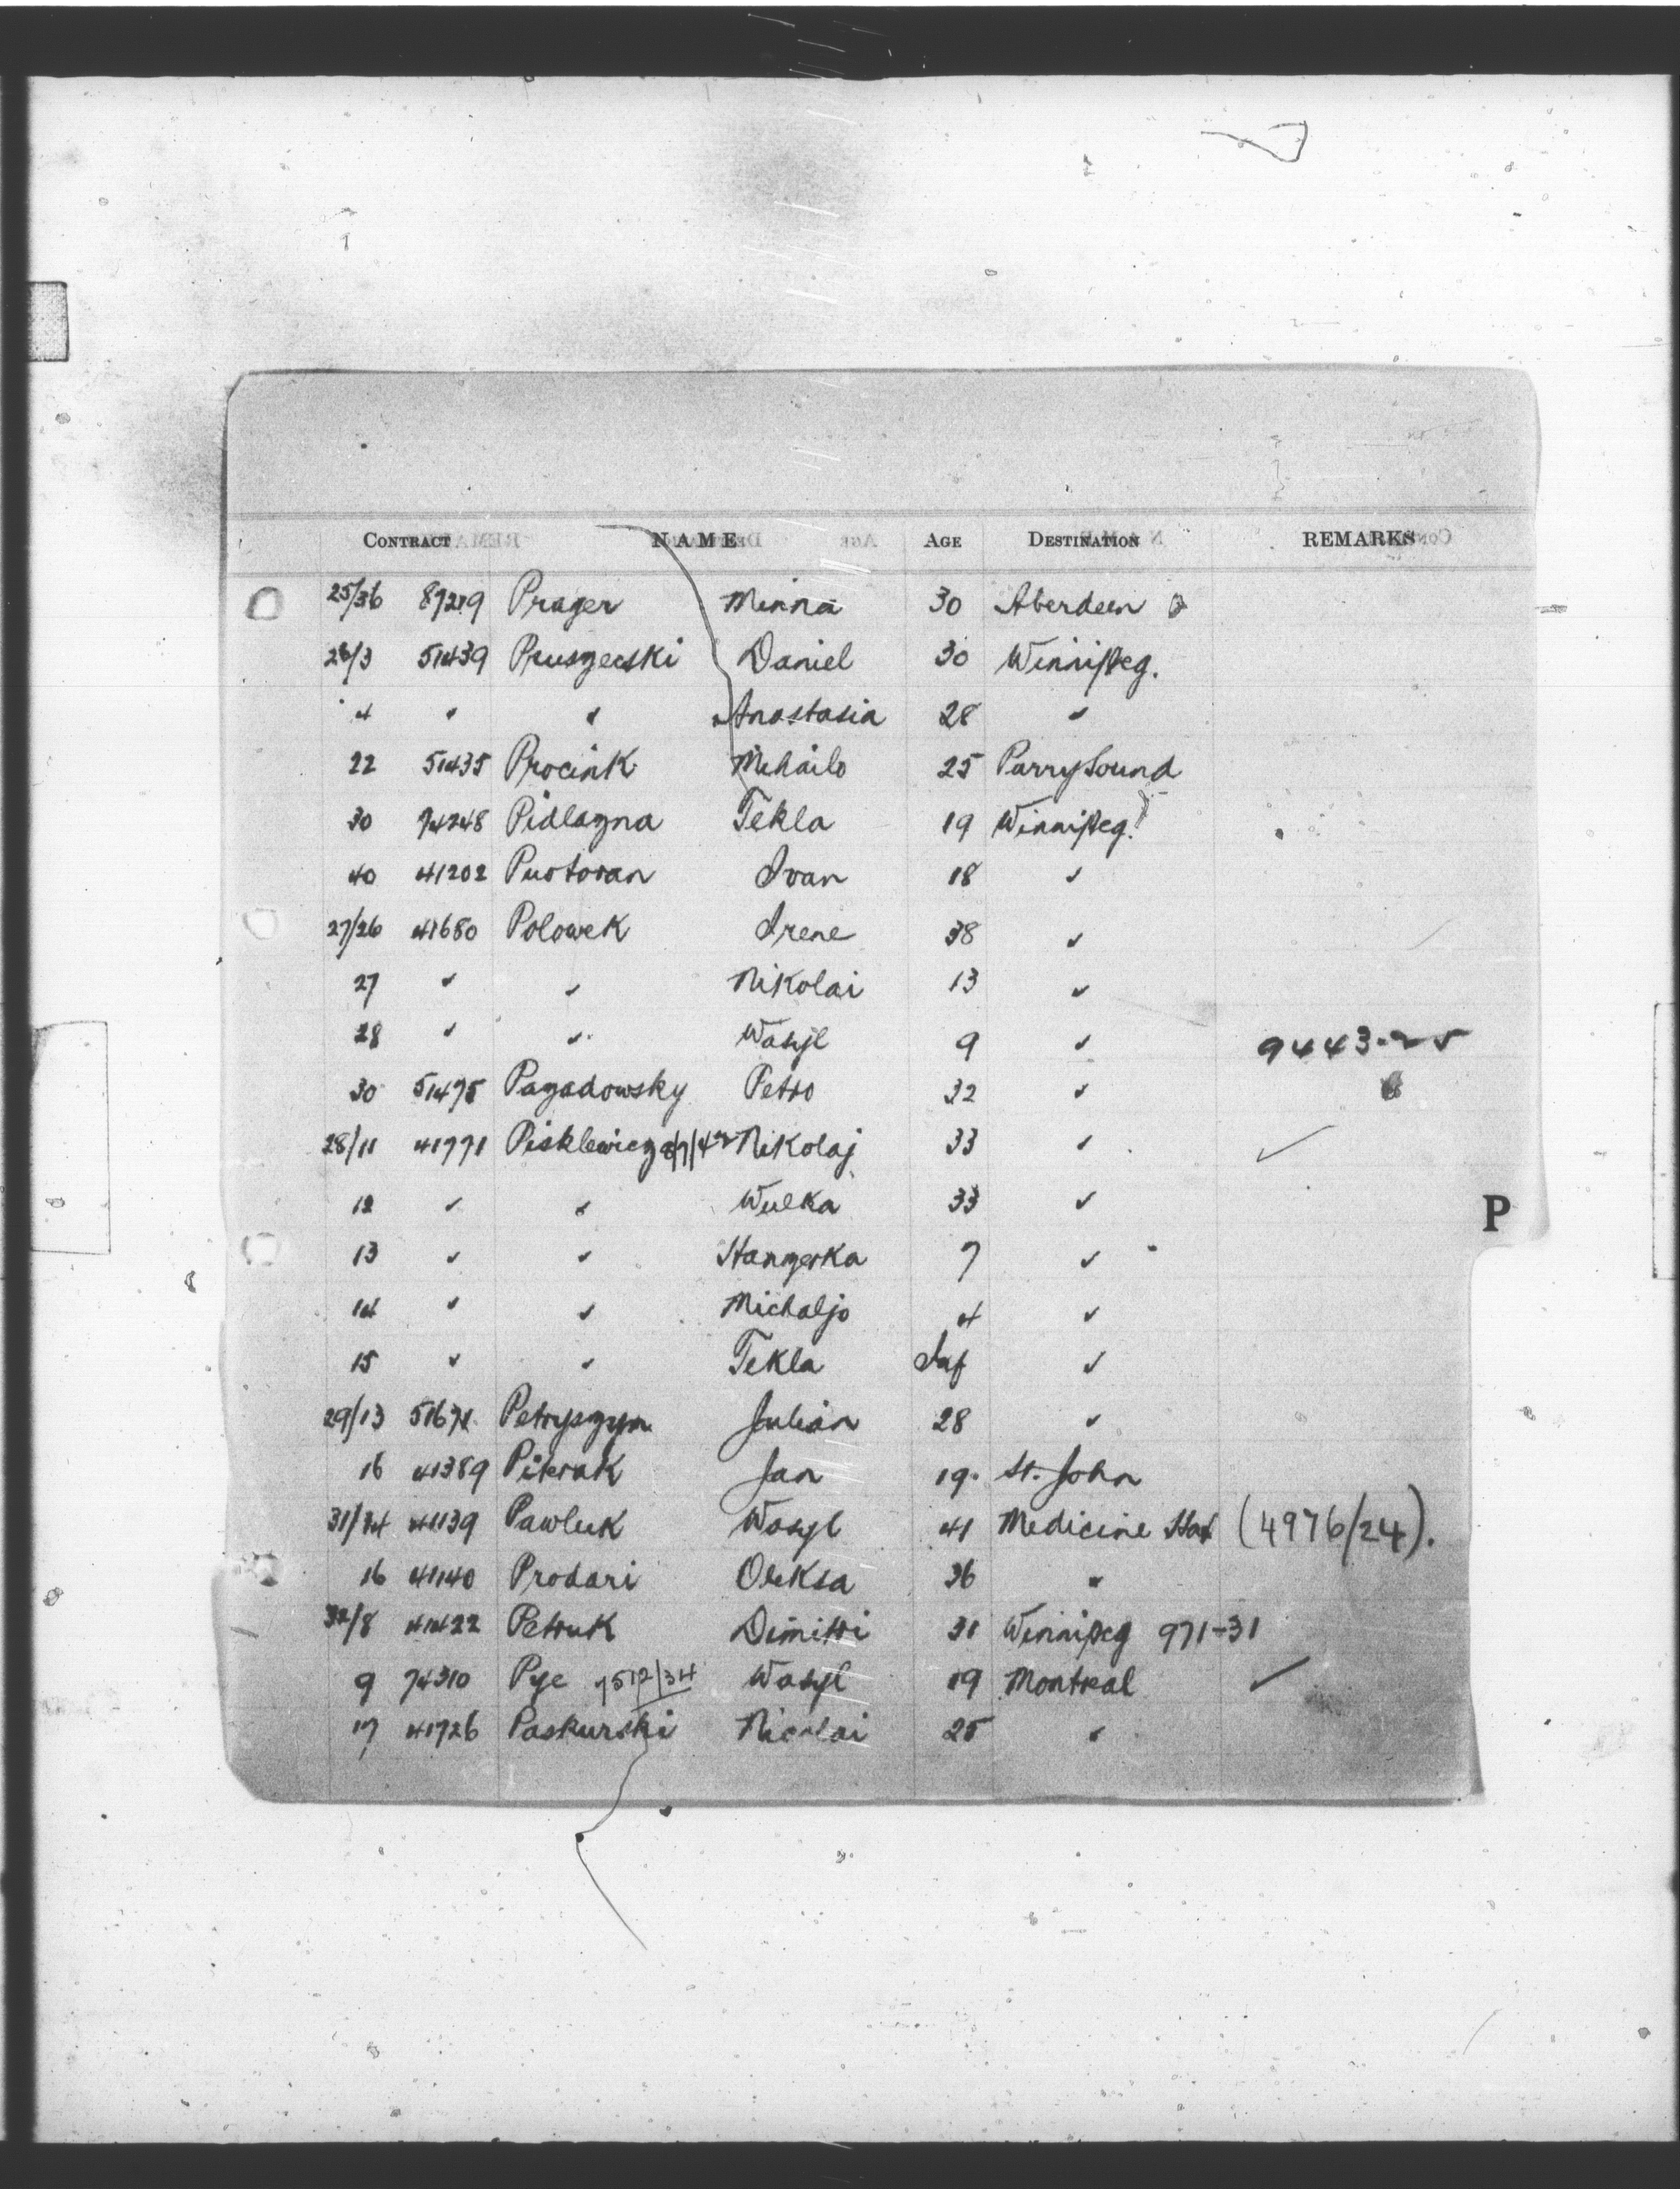 CONTRACT NAME AGE DESTINATION REMARKS
25/36 87219 Prager Minna 30 Aberdeen
26/3 51439 Pruszecski Daniel 30 Winnipeg.
4 " " Anastasia 28 "
22 51435 Procink Mihailo 25 Parry Sound
30 74248 Pidlazna Tekla 19 Winnipeg.
40 41202 Pustovan Ivan 18 "
27/26 41680 Polowek Irene 38 "
27 " " Nikolai 13 "
28 " " Wasyl 9 " 9443-25
30 51475 Pazadowsky Petro 32 "
28/11 41771 Pisklewicz Nikolaj 33 "
12 " " Wulka 33 "
13 " " Hanzerka 7 "
14 " " Michaljo 4 "
15 " " Tekla Inf "
29/13 Petryszyn Julian 28 "
16 41389 Pikrak Jan 19 St. John
31/14 41139 Pawluk Wasyl 41 Medicine Hat (4976/24).
16 41140 Prodari Oleksa 36 "
32/8 41422 Petruk Dimitri 31 Winnipeg 971-31
9 74310 Pyc 7512/34 Wasyl 19 Montreal
17 41726 Paskurski Nicolai 25 "
P